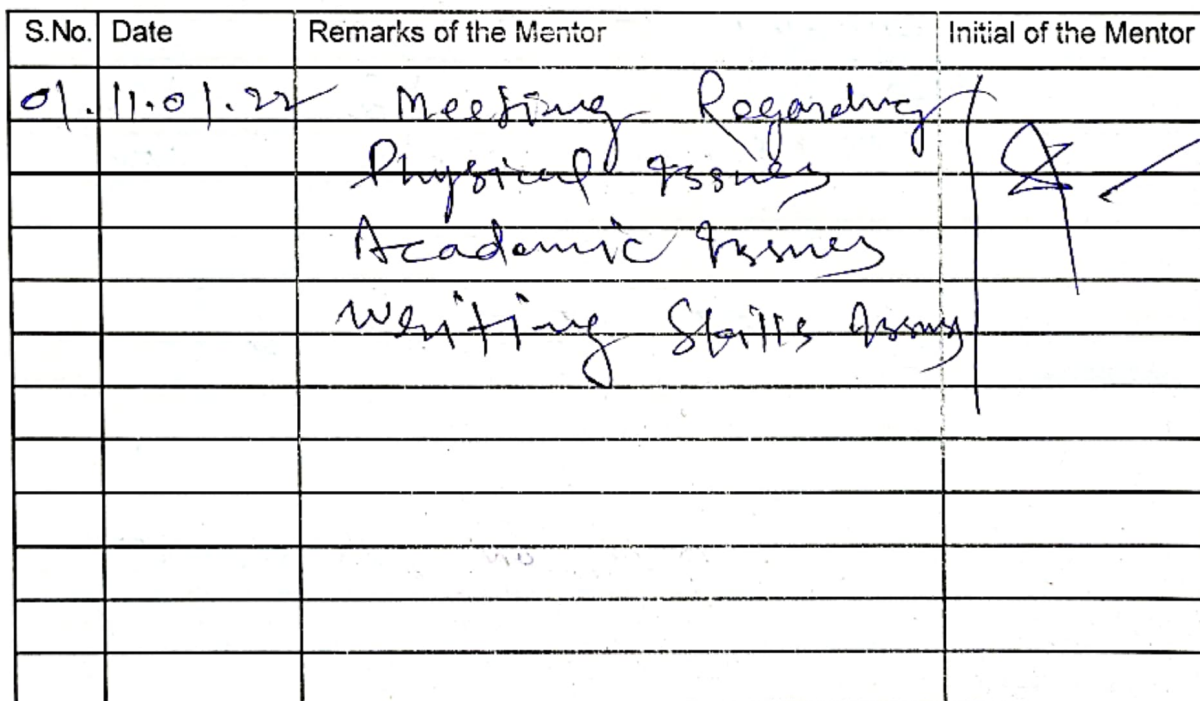 S.No. Date Remarks of the Mentor Initial of the Mentor
01. 11.01.22 Meeting Regarding
Physical Issues
Academic Issues
Writing Skills Issues